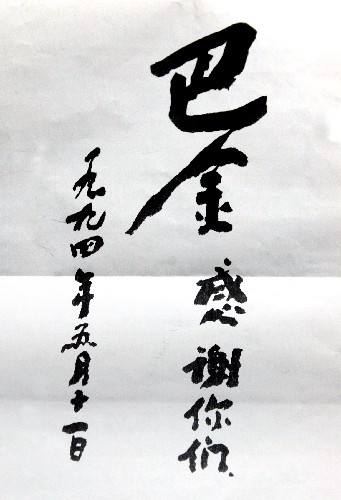 巴金感谢你们
一九九四年五月十一日